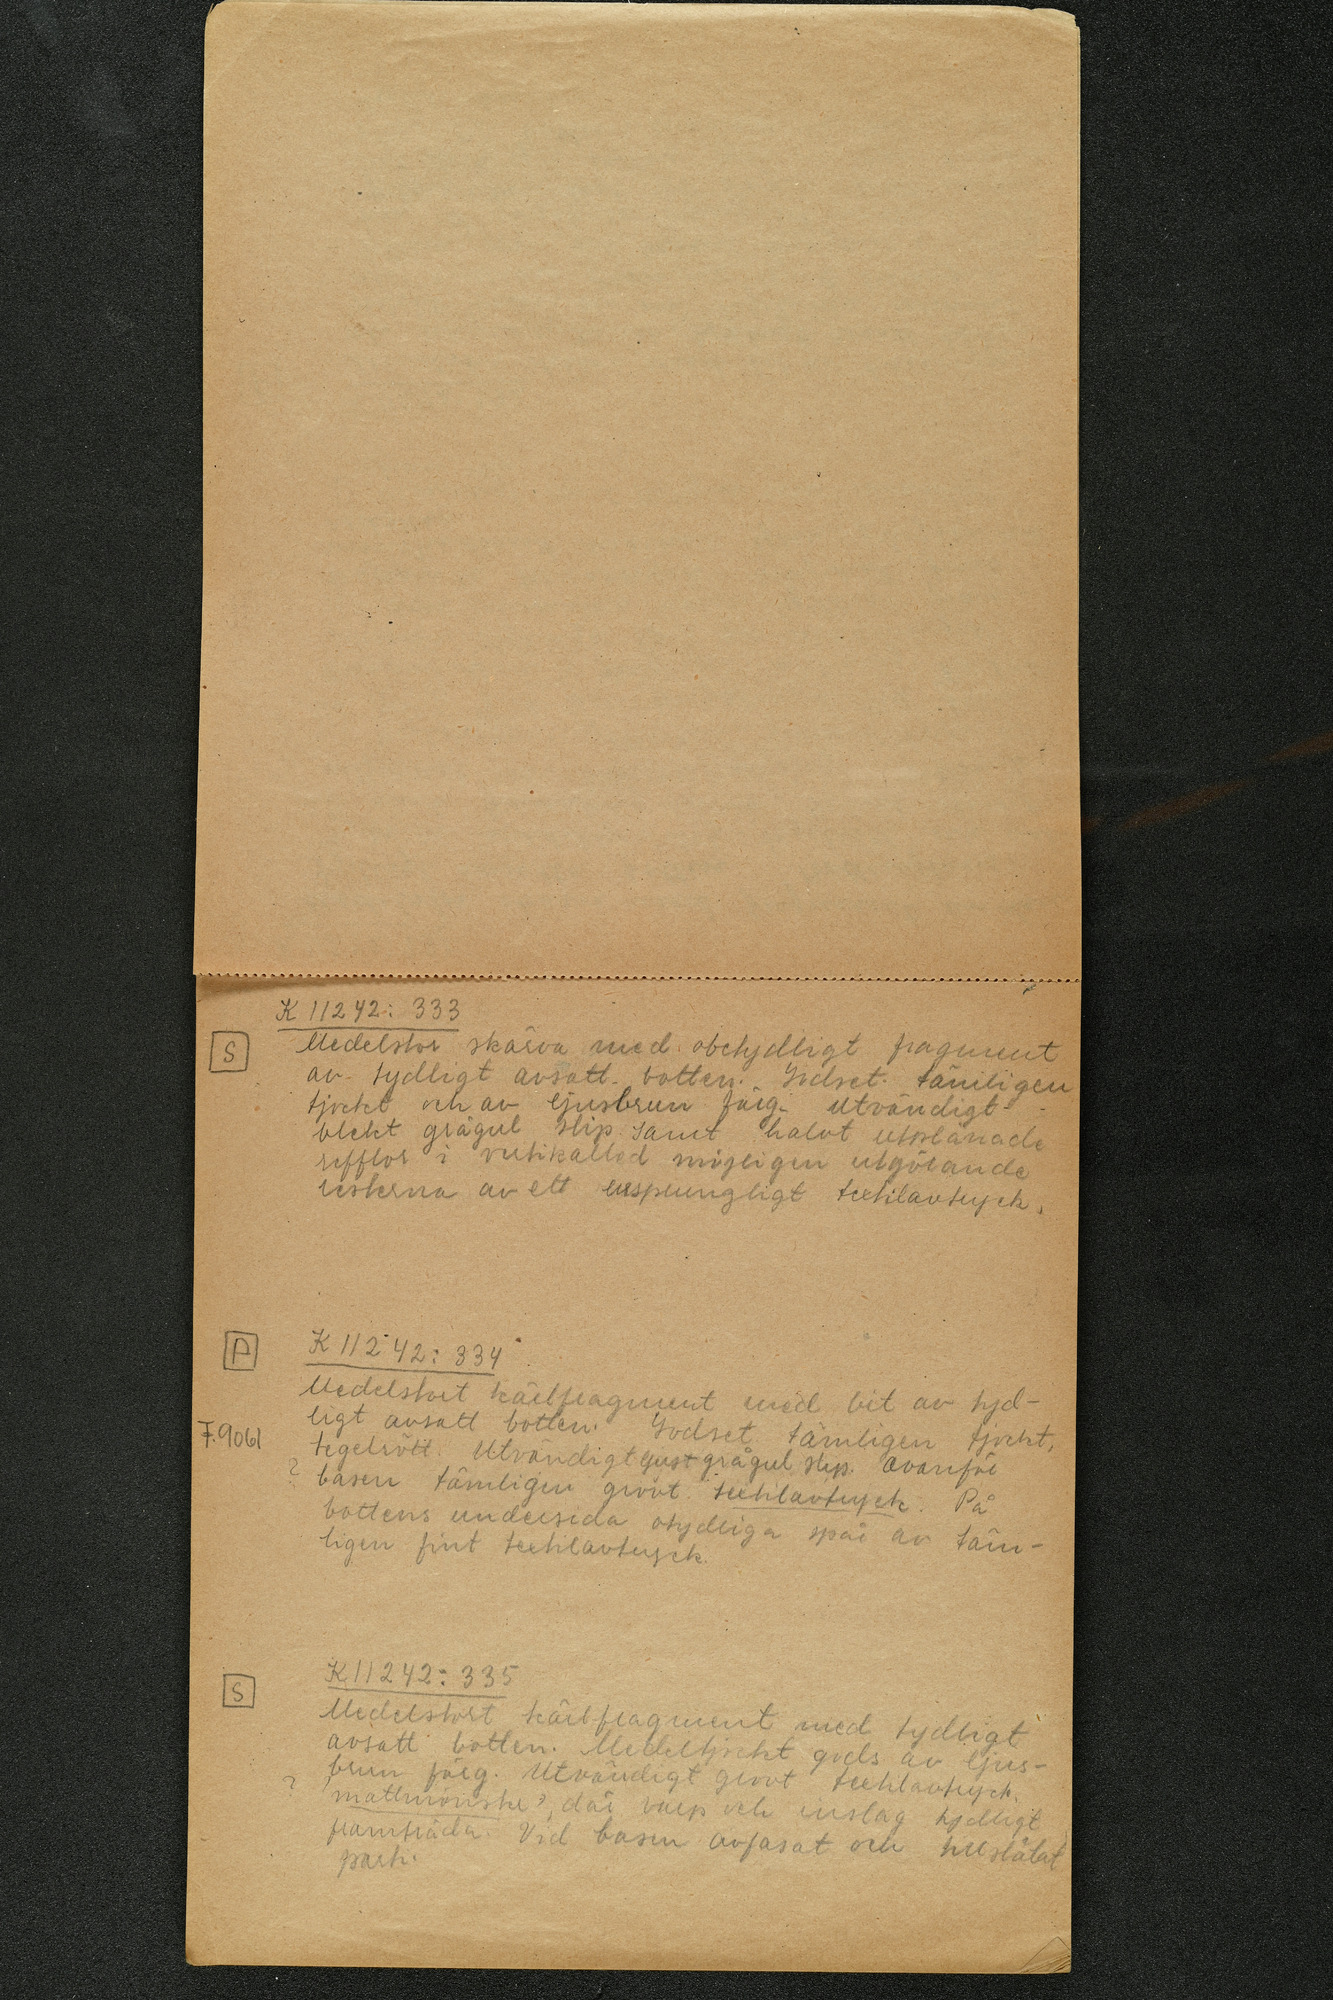 K 11242: 333
S
Medelstor skärva med obetydligt fragment
av tydligt avsatt botten. Godset tämligen
tjockt och av ljusbrun färg. Utvändigt
blekt grågul slip samt halvt utplånade
refflor i vertikalled möjligen utgörande
resterna av ett ursprungligt textilavtryck.
P
K 11242: 334
Medelstort kärlfragment med bit av tyd-
ligt avsatt botten. Godset tämligen tjockt,
F.9061
tegelrött. Utvändigt ljust grågul slip. Ovanför
? basen tämligen grovt textilavtryck. På
bottens undersida otydliga spår av täm-
ligen fint textilavtryck.
K 11242: 335
S
Medelstort kärlfragment med tydligt
avsatt botten. Medeltjockt gods av ljus-
brun färg. Utvändigt grovt textilavtryck,
? "mattmönster", där varp och inslag tydligt
framträda. Vid basen avfasat och tillslätat
parti.